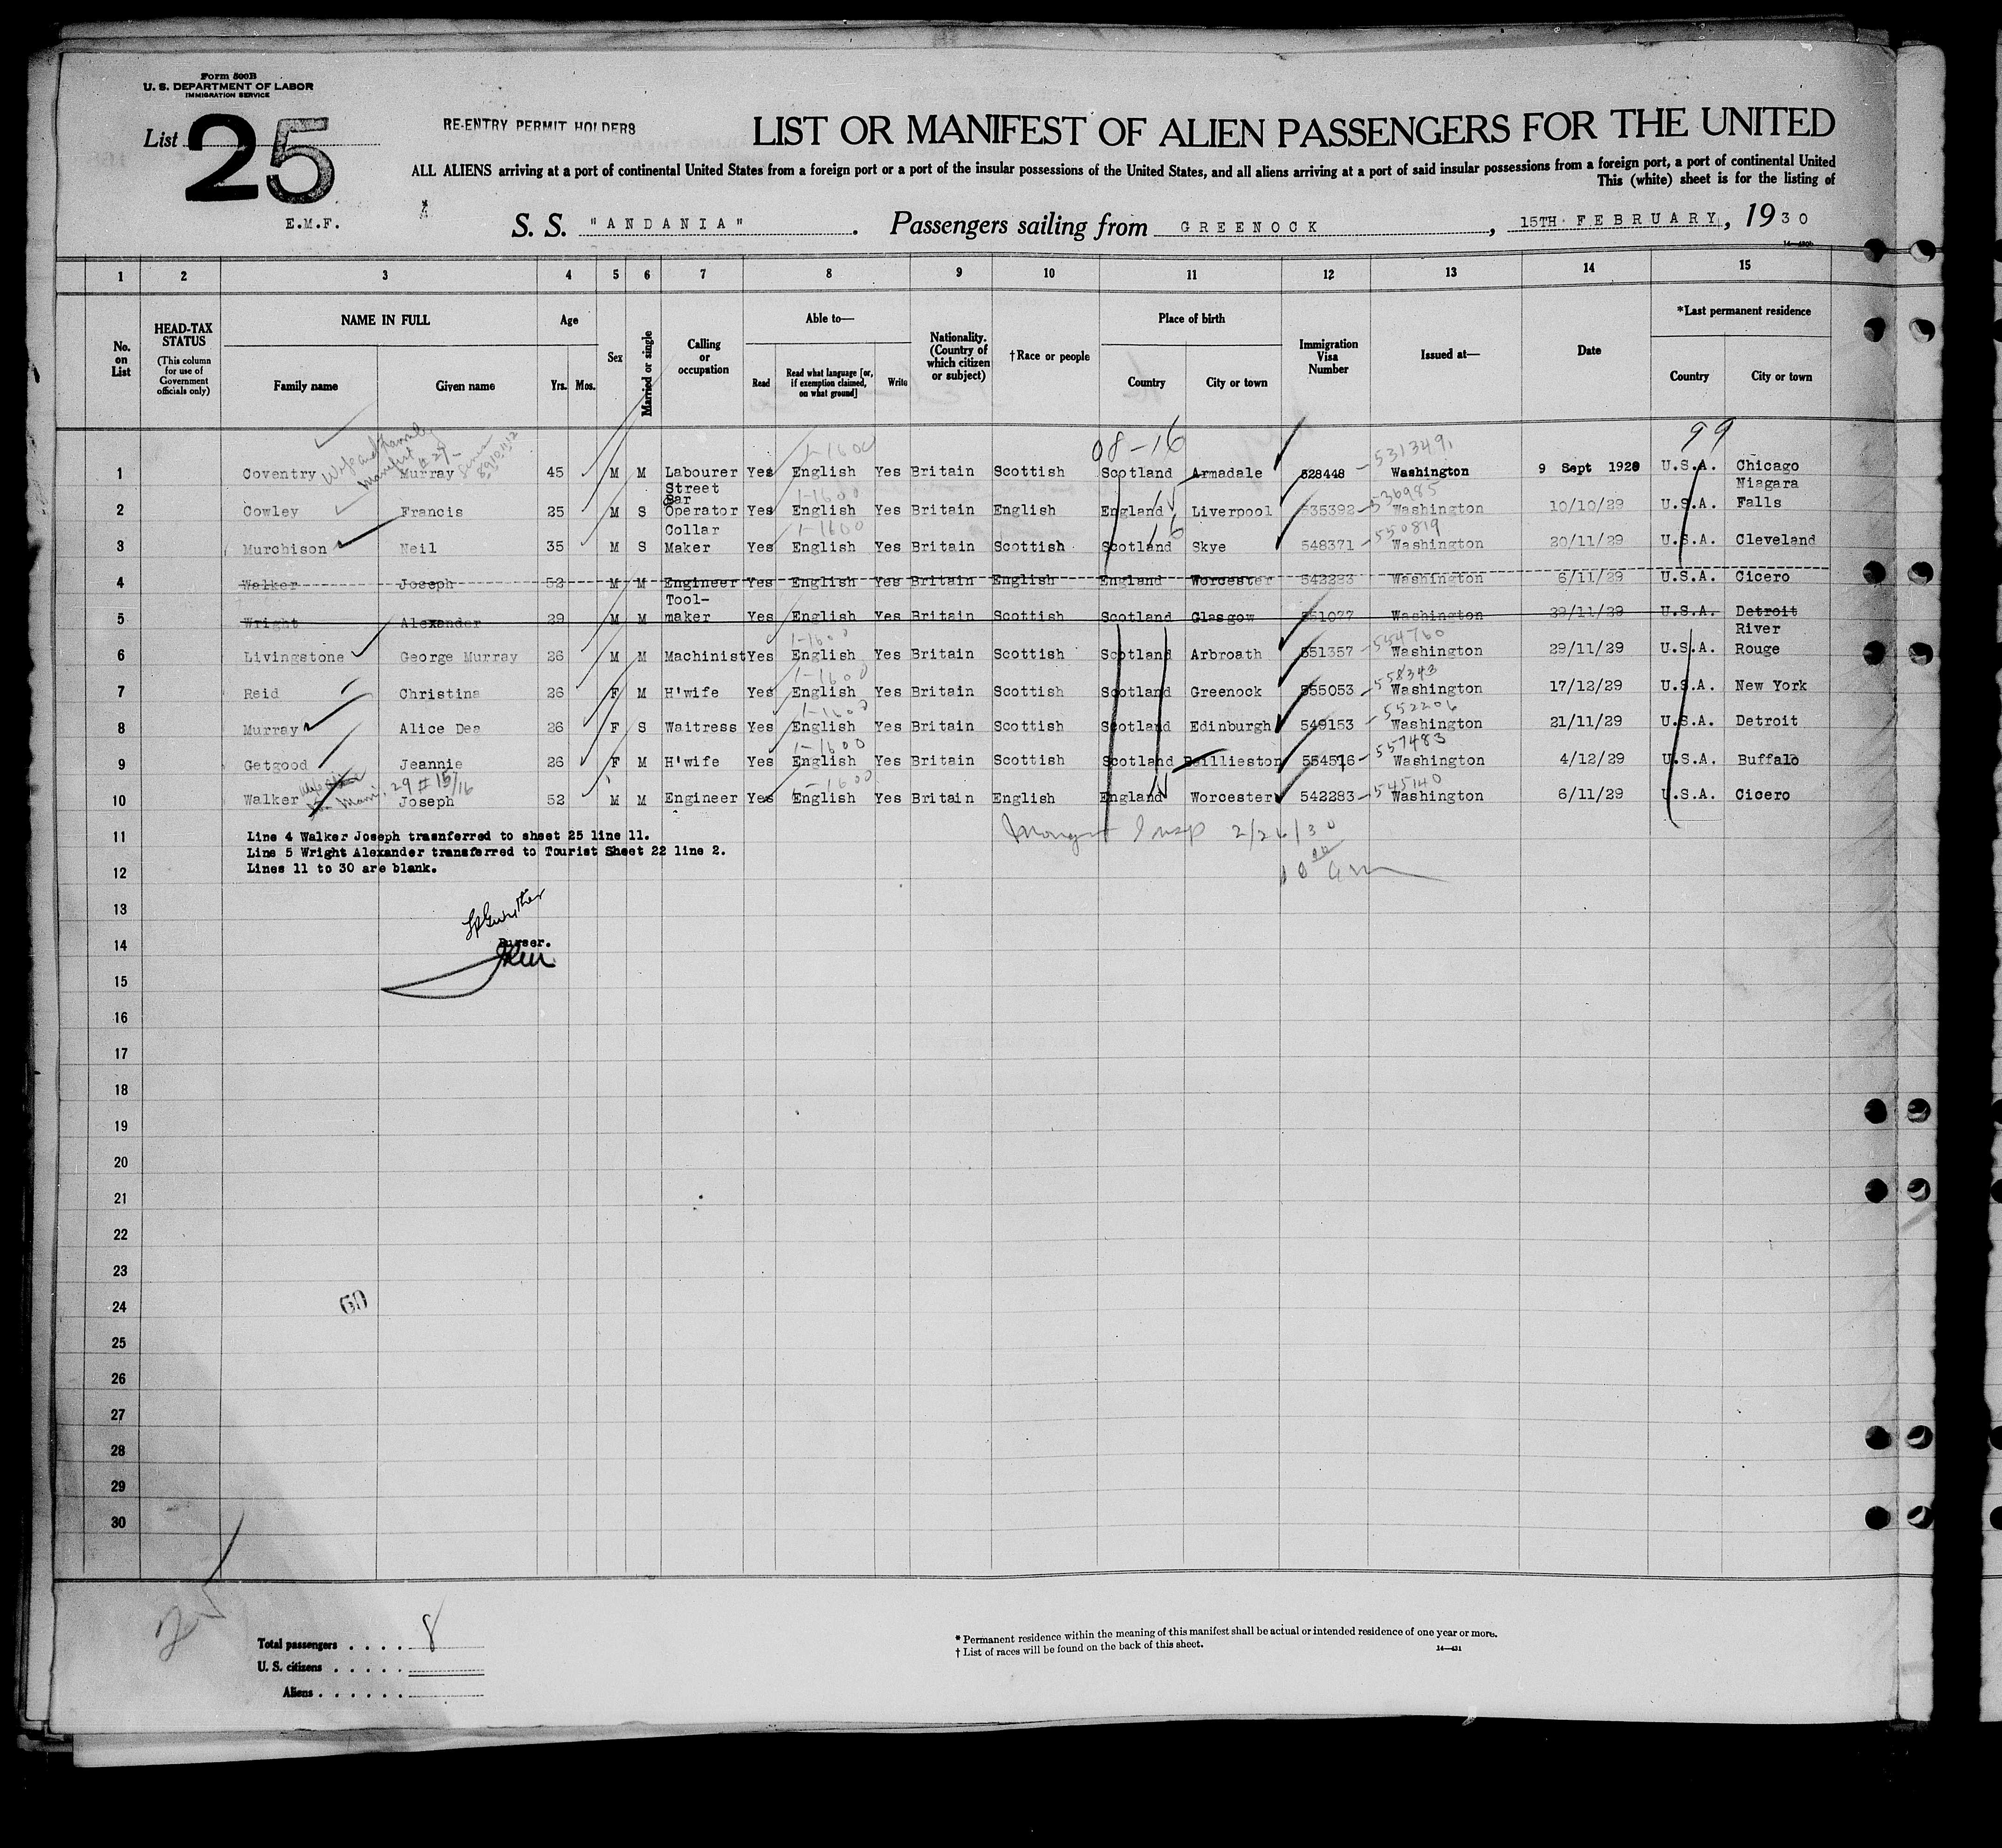 Form 500B
U. S. DEPARTMENT OF LABOR
IMMIGRATION SERVICE
List 25
RE-ENTRY PERMIT HOLDERS
LIST OR MANIFEST OF ALIEN PASSENGERS FOR THE UNITED
ALL ALIENS arriving at a port of continental United States from a foreign port or a port of the insular possessions of the United States, and all aliens arriving at a port of said insular possessions from a foreign port, a port of continental United
This (white) sheet is for the listing of
E.M.F.
S. S. "ANDANIA". Passengers sailing from GREENOCK, 15TH FEBRUARY, 1930
1 2 3 4 5 6 7 8 9 10 11 12 13 14 15
No. on List
HEAD-TAX STATUS (This column for use of Government officials only)
NAME IN FULL Family name Given name
Age Yrs. Mos.
Sex
Married or single
Calling or occupation
Able to— Read Read what language [or, if exemption claimed, on what ground] Write
Nationality. (Country of which citizen or subject)
†Race or people
Place of birth Country City or town
Immigration Visa Number
Issued at—
Date
*Last permanent residence Country City or town
08-16 99
Wife and family manifest # 29
1 Coventry Murray 45 M M Labourer Yes English Yes Britain Scottish Scotland Armadale 528448 5313491 Washington 9 Sept 1929 U.S.A. Chicago
2 Cowley Francis 25 M S Street Car Operator Yes 1-1600 English Yes Britain English England Liverpool 535392 536985 Washington 10/10/29 U.S.A. Niagara Falls
3 Murchison Neil 35 M S Collar Maker Yes 1-1600 English Yes Britain Scottish Scotland 16 Skye 548371 550819 Washington 20/11/29 U.S.A. Cleveland
4 Walker Joseph 52 M M Engineer Yes English Yes Britain English England Worcester 542283 Washington 6/11/29 U.S.A. Cicero
5 Wright Alexander 29 M M Tool-maker Yes English Yes Britain Scottish Scotland Glasgow 551077 Washington 29/11/29 U.S.A. Detroit
6 Livingstone George Murray 26 M M Machinist Yes 1-1600 English Yes Britain Scottish Scotland Arbroath 551357 554760 Washington 29/11/29 U.S.A. River Rouge
7 Reid Christina 26 F M H'wife Yes 1-1600 English Yes Britain Scottish Scotland Greenock 555053 558343 Washington 17/12/29 U.S.A. New York
8 Murray Alice Dea 26 F S Waitress Yes 1-1600 English Yes Britain Scottish Scotland Edinburgh 549153 552206 Washington 21/11/29 U.S.A. Detroit
9 Getgood Jeannie 26 F M H'wife Yes 1-1600 English Yes Britain Scottish Scotland Baillieston 554516 557483 Washington 4/12/29 U.S.A. Buffalo
29 # 15/16
10 Walker Joseph 52 M M Engineer Yes 1-1600 English Yes Britain English England Worcester 542283 545140 Washington 6/11/29 U.S.A. Cicero
11 Line 4 Walker Joseph trasnferred to sheet 25 line 11.
Line 5 Wright Alexander transferred to Tourist Sheet 22 line 2.
Lines 11 to 30 are blank.
Insp 2/26/30
12
13
14 Purser.
15
16
17
18
19
20
21
22
23
24
60
25
26
27
28
29
30
25
Total passengers . . . . 8
U. S. citizens . . . . .
Aliens . . . . . .
* Permanent residence within the meaning of this manifest shall be actual or intended residence of one year or more.
† List of races will be found on the back of this sheet.
14—431